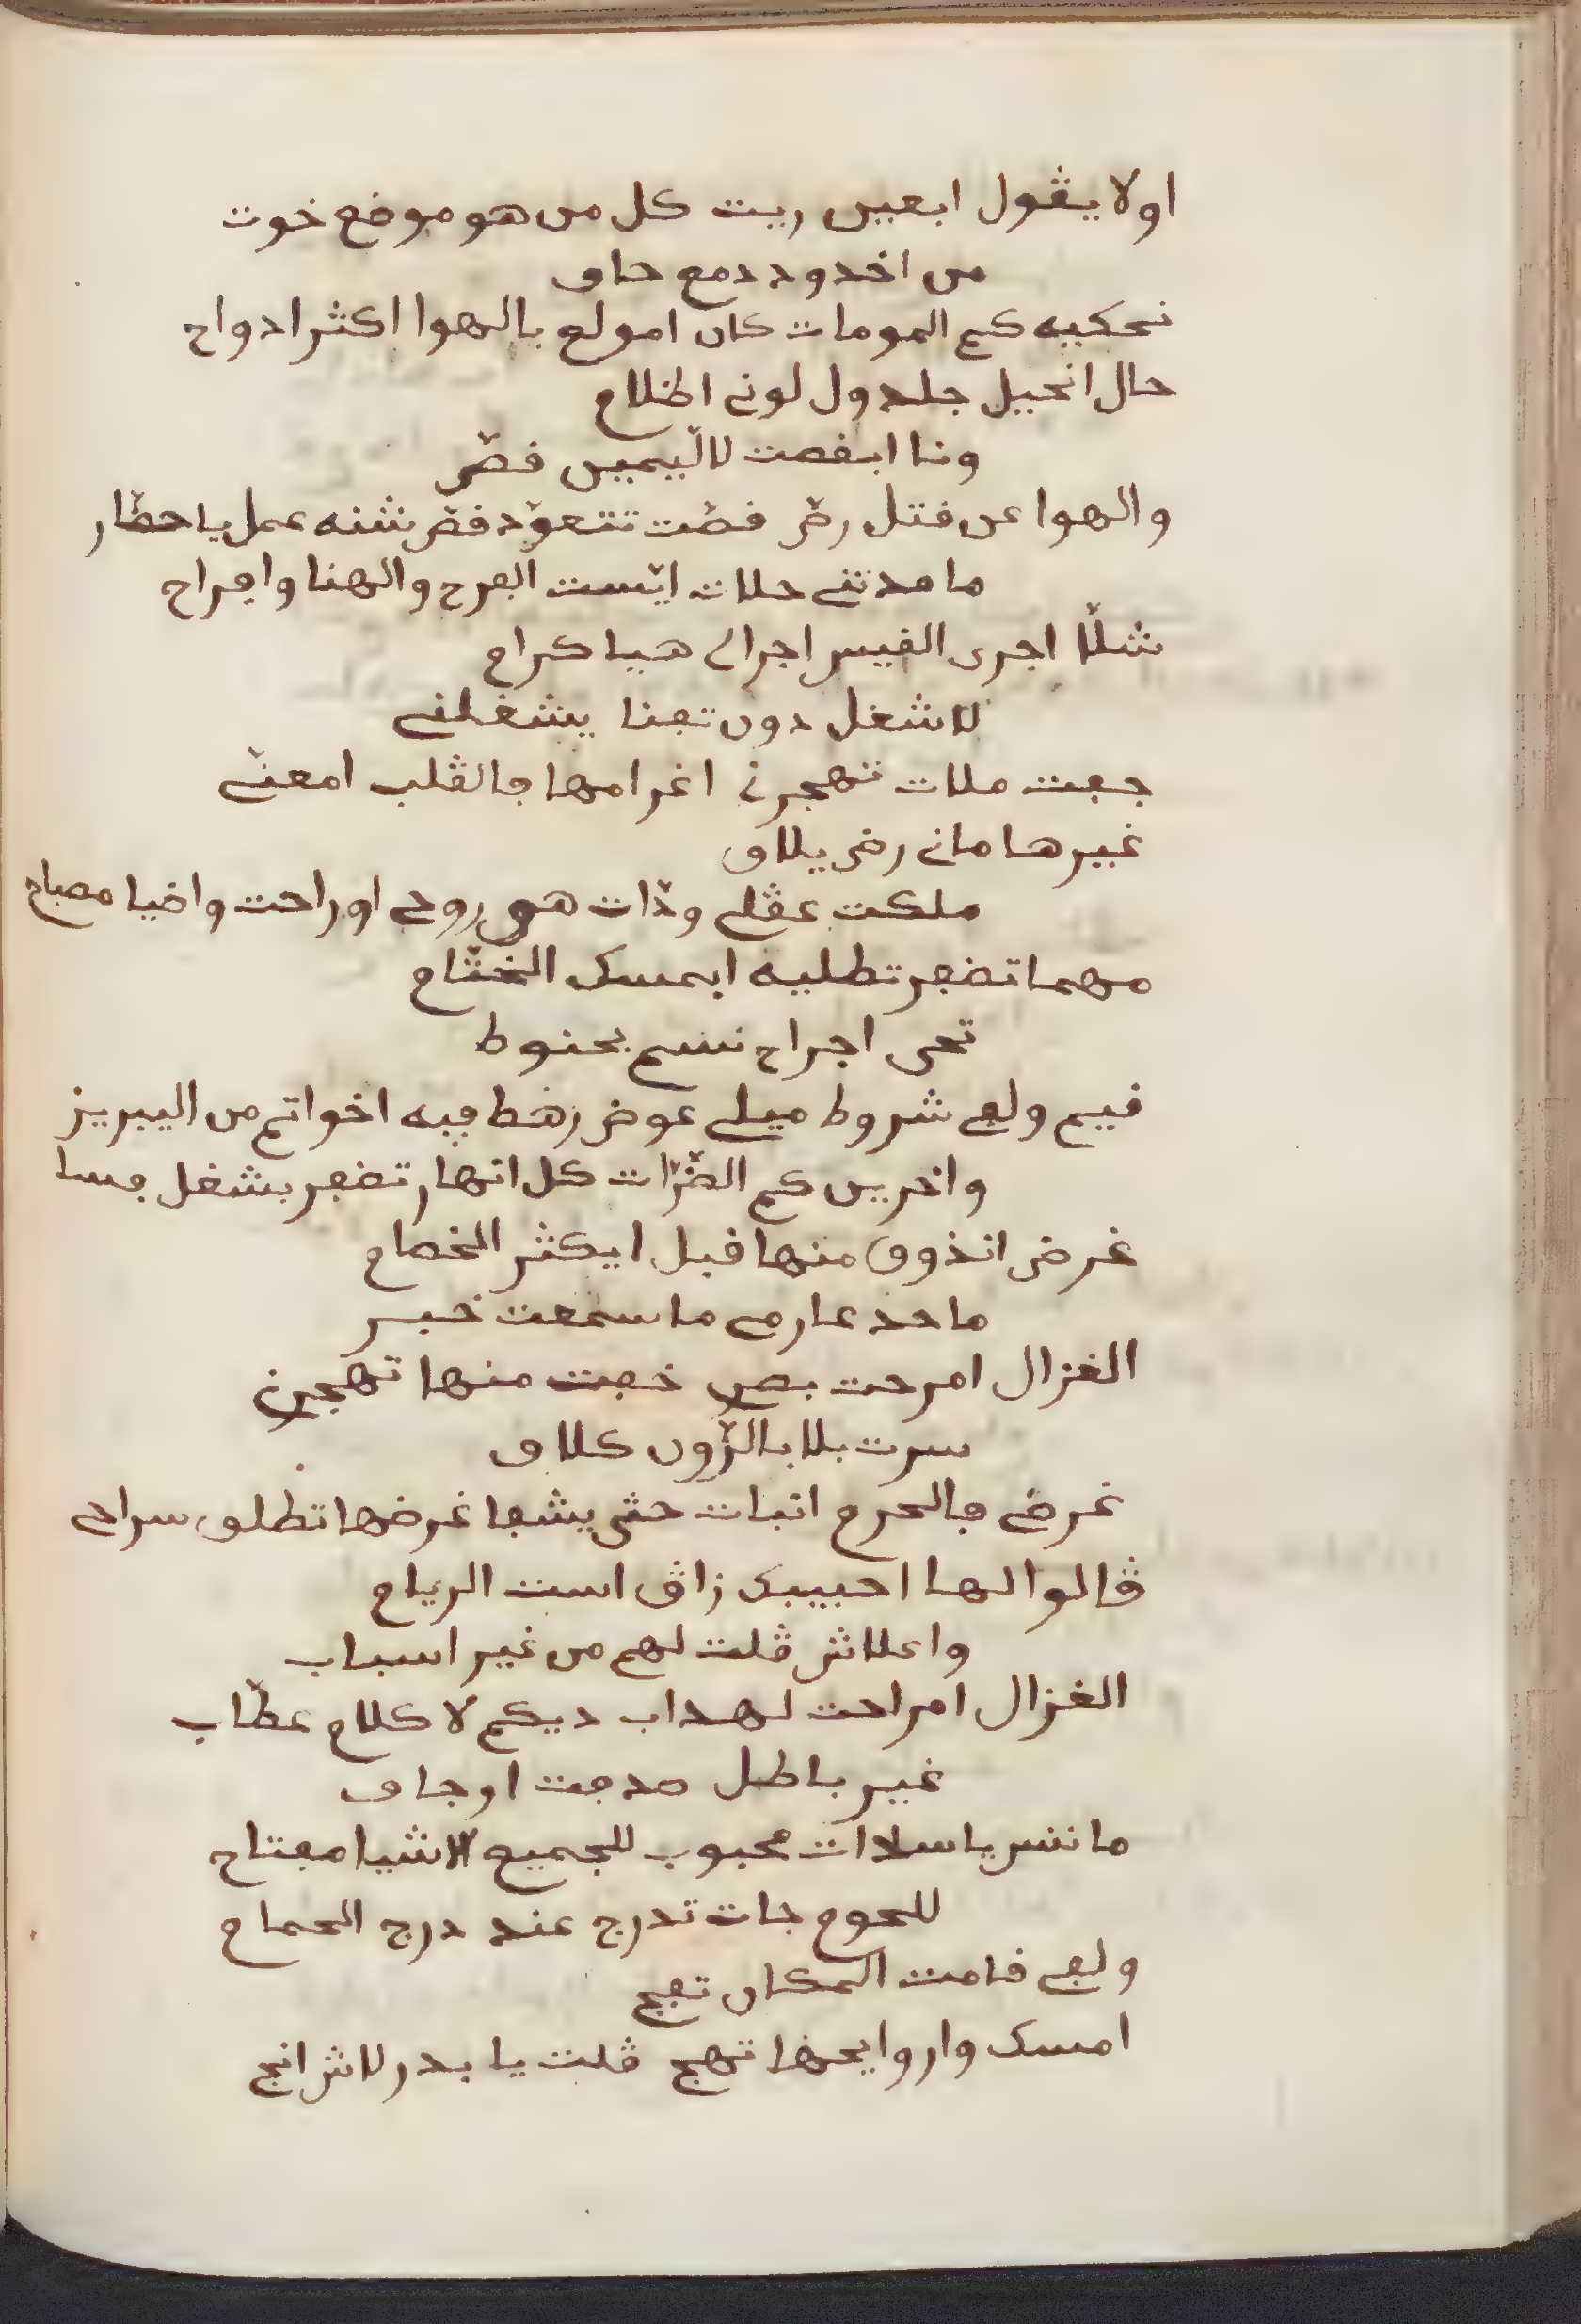 اولا يڨول ابعين ريت كل من هو موضع خوت
من اخدود دمع حاف
نحكيه كم المومات كان امولع بالهوا اكثر ادواح
حال انحيل جلد ول لونى اظلام
ونا ابغصت لاليمين فضى
والهوا عن فتل رضى فصت تتعود فقر شنه عمل يا حضار
ما مدتنى حلات ايست البرح والهنا وابراح
شلا اجرى الفيس اجرالى هيا كرام
لا شغل دون تبنا يشغلنى
جبت ملات تهجرنى اغرامها جالڨلب امعنى
غيرها مانى رضى يلاف
ملكت عڨلى وذات هى روحى اوراحت واضيا مصباح
مهما تضبر تطليه ابمسك الختام
تحى اجراح نسم بحنوط
فيم ولبى شروط ميلى عوض زهط ڢيه اخواتم من اليبريز
واخرين كم الضرات كل انهار تضبر بشغل ڢسا
غرض انذوق منها فبل ايكثر الخصام
ما حد عارمى ما سمعت خبر
الغزال امرحت بصرى خبت منها تهجرنى
سرت بلا بالزون كلاف
غرضى ڢالحرم اثبات حتى يشبا غرضها تطلق سراحى
ڨالوا لها احبيبك زاڨ است الرياح
واعلاش ڨلت لهم من غير اسباب
الغزال امراحت لهداب ديكم لا كلام عطاب
غير باطل صدڢت اوجاف
ما ننس يا سلاات محبوب للجميع الاشيا مڢتاح
للحوم جات تدرج عند درج الحمام
ولبى فامت المكان تبج
امسك واروايحها تهج ڨلت يا بدر لاش انج